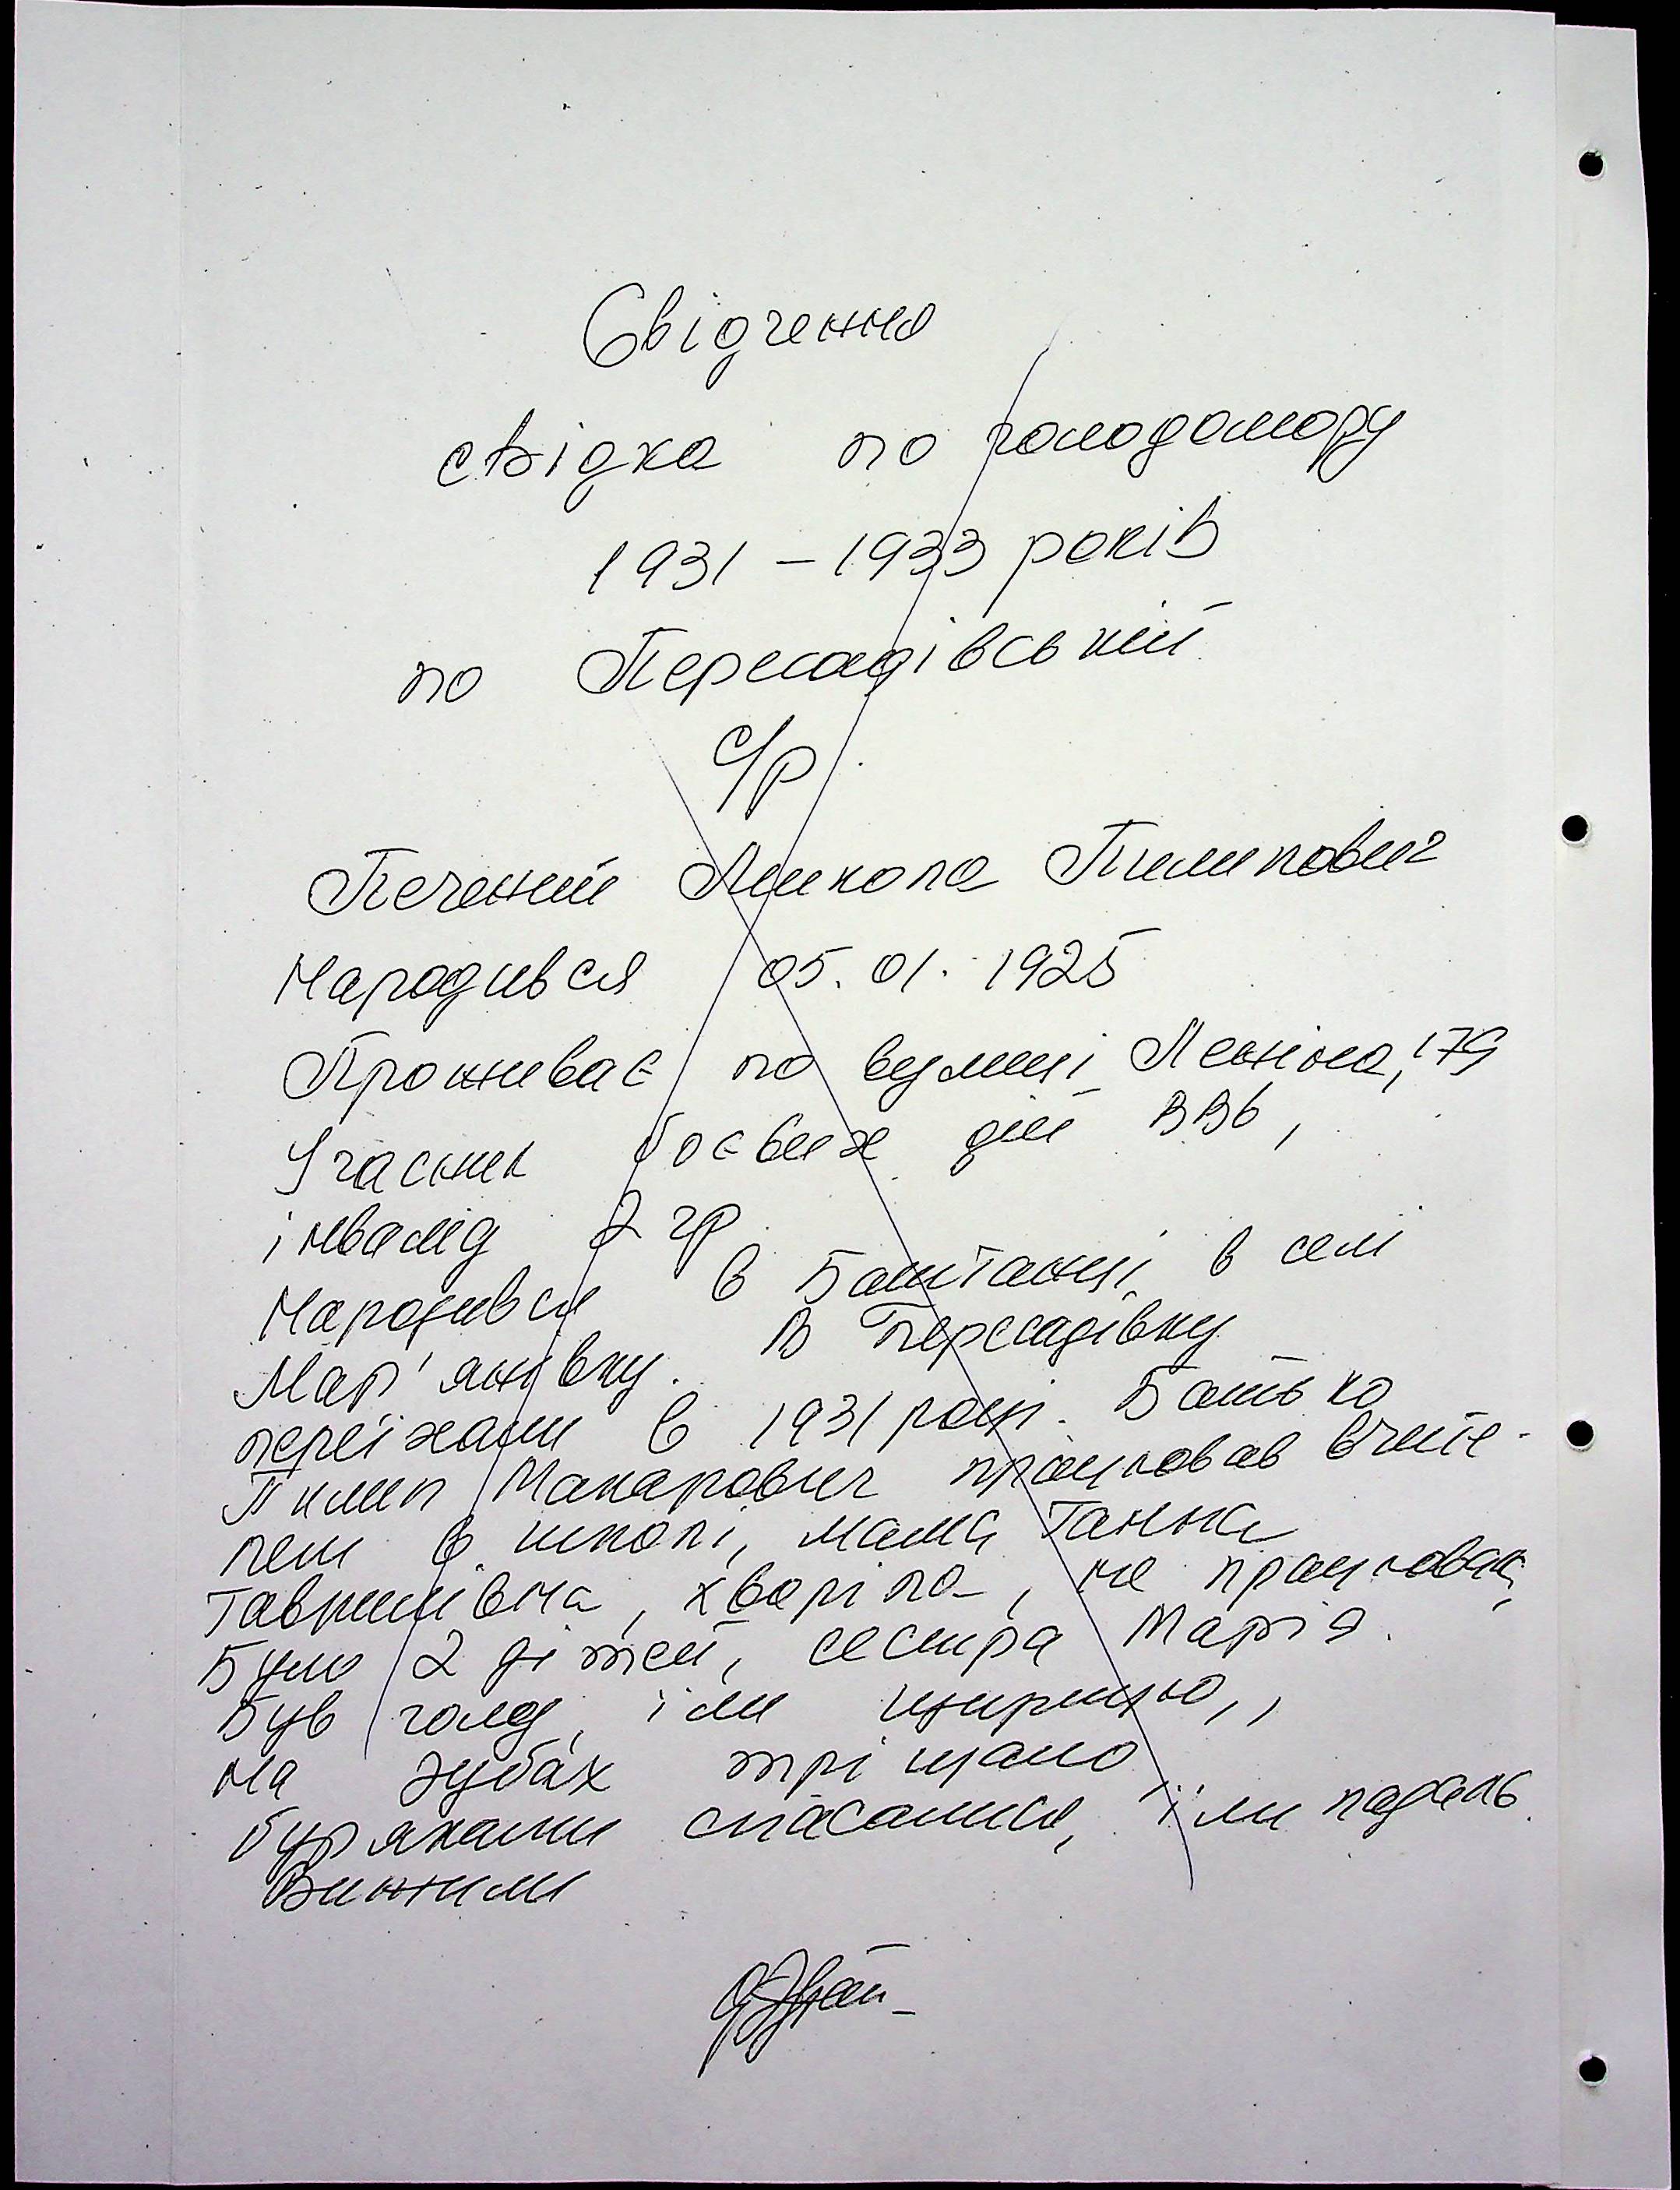 Свідчення
свідка по голодомору
1931 – 1933 років
по Пересадівській
с/р
Печений Микола Пилипович
Народився 05.01.1925
Проживає по вулиці Леніна, 179
Учасник боєвих дій ВВв,
інвалід 2 гр
Народився в Баштанці в селі
Мар'янівку. В Пересадівку
переїхали в 1931 році. Батько
Пилип Макарович працював вчите-
лем в школі, мама Ганна
Гаврилівна, хворіла, не працювала,
Було 2 дітей, сестра Марія.
Був голод, їли щирицю,,
на зубах тріщало
буряками спасались, їли падаль.
Вижили